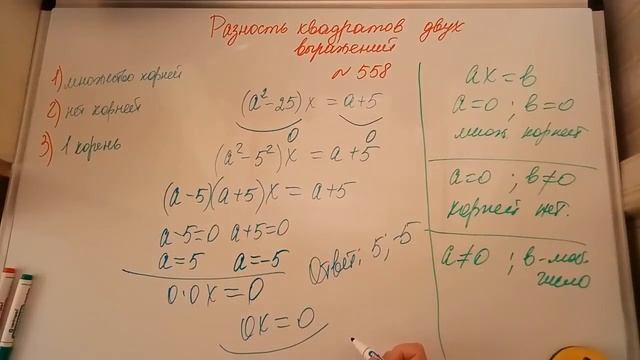 Разность квадратов двух
выражений
N 558
1) множество корней
2) нет корней
3) 1 корень
(a²-25)x = a+5
0 0
(a²-5²)x = a+5
(a-5)(a+5)x = a+5
a-5=0 a+5=0
a=5 a=-5
0·0x=0
0x=0
Ответ: 5; -5
ax=b
a=0 ; b=0
множ корней
a=0 ; b≠0
корней нет.
a≠0 ; b-люб.
число